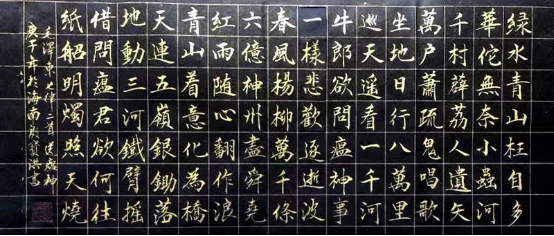 绿水青山枉自多
華佗無奈小蟲河
千村薜荔人遺矢
萬户蕭疏鬼唱歌
坐地日行八萬里
巡天遥看一千河
牛郎欲問瘟神事
一樣悲歡逐逝波
春風楊柳萬千條
六億神州盡舜堯
紅雨随心翻作浪
青山着意化為橋
天連五嶺銀鋤落
地動三河鐵臂摇
借問瘟君欲何往
紙船明燭照天燒
毛澤東七律二首送瘟神
庚子年於海南洪書